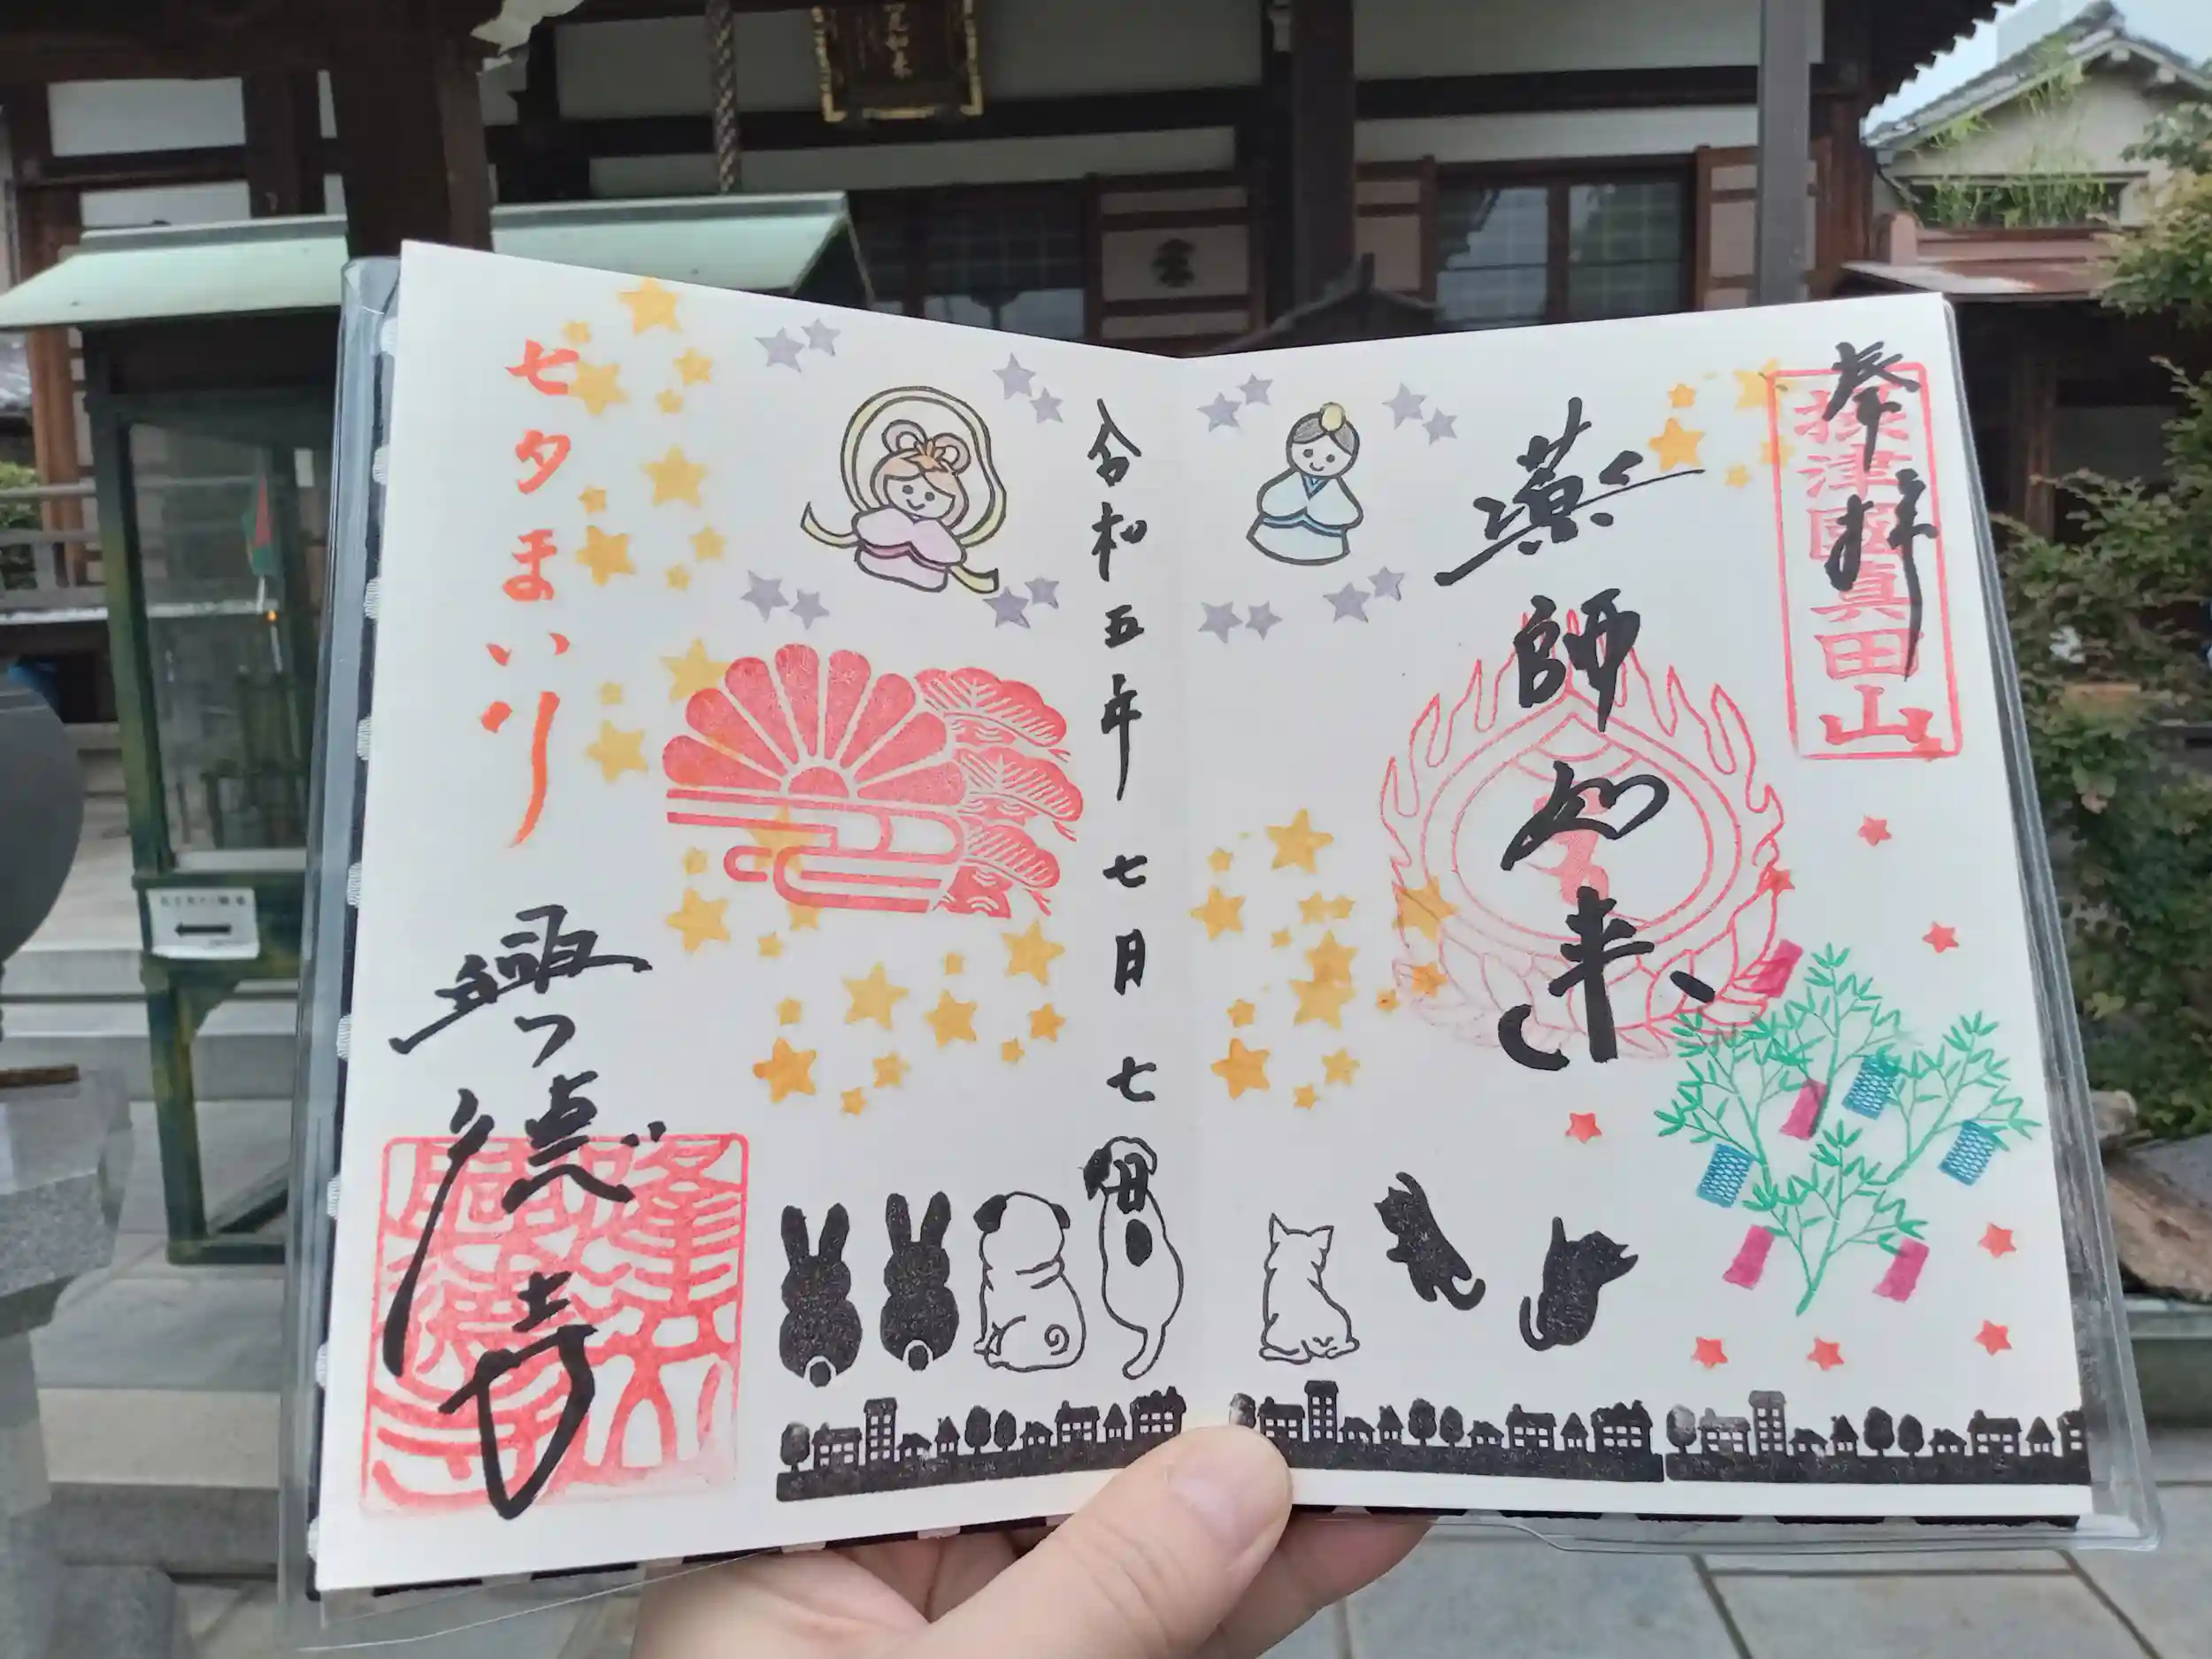 奉拝
摂津國真田山
薬師如来
令和五年七月七日
七夕まいり
興徳寺